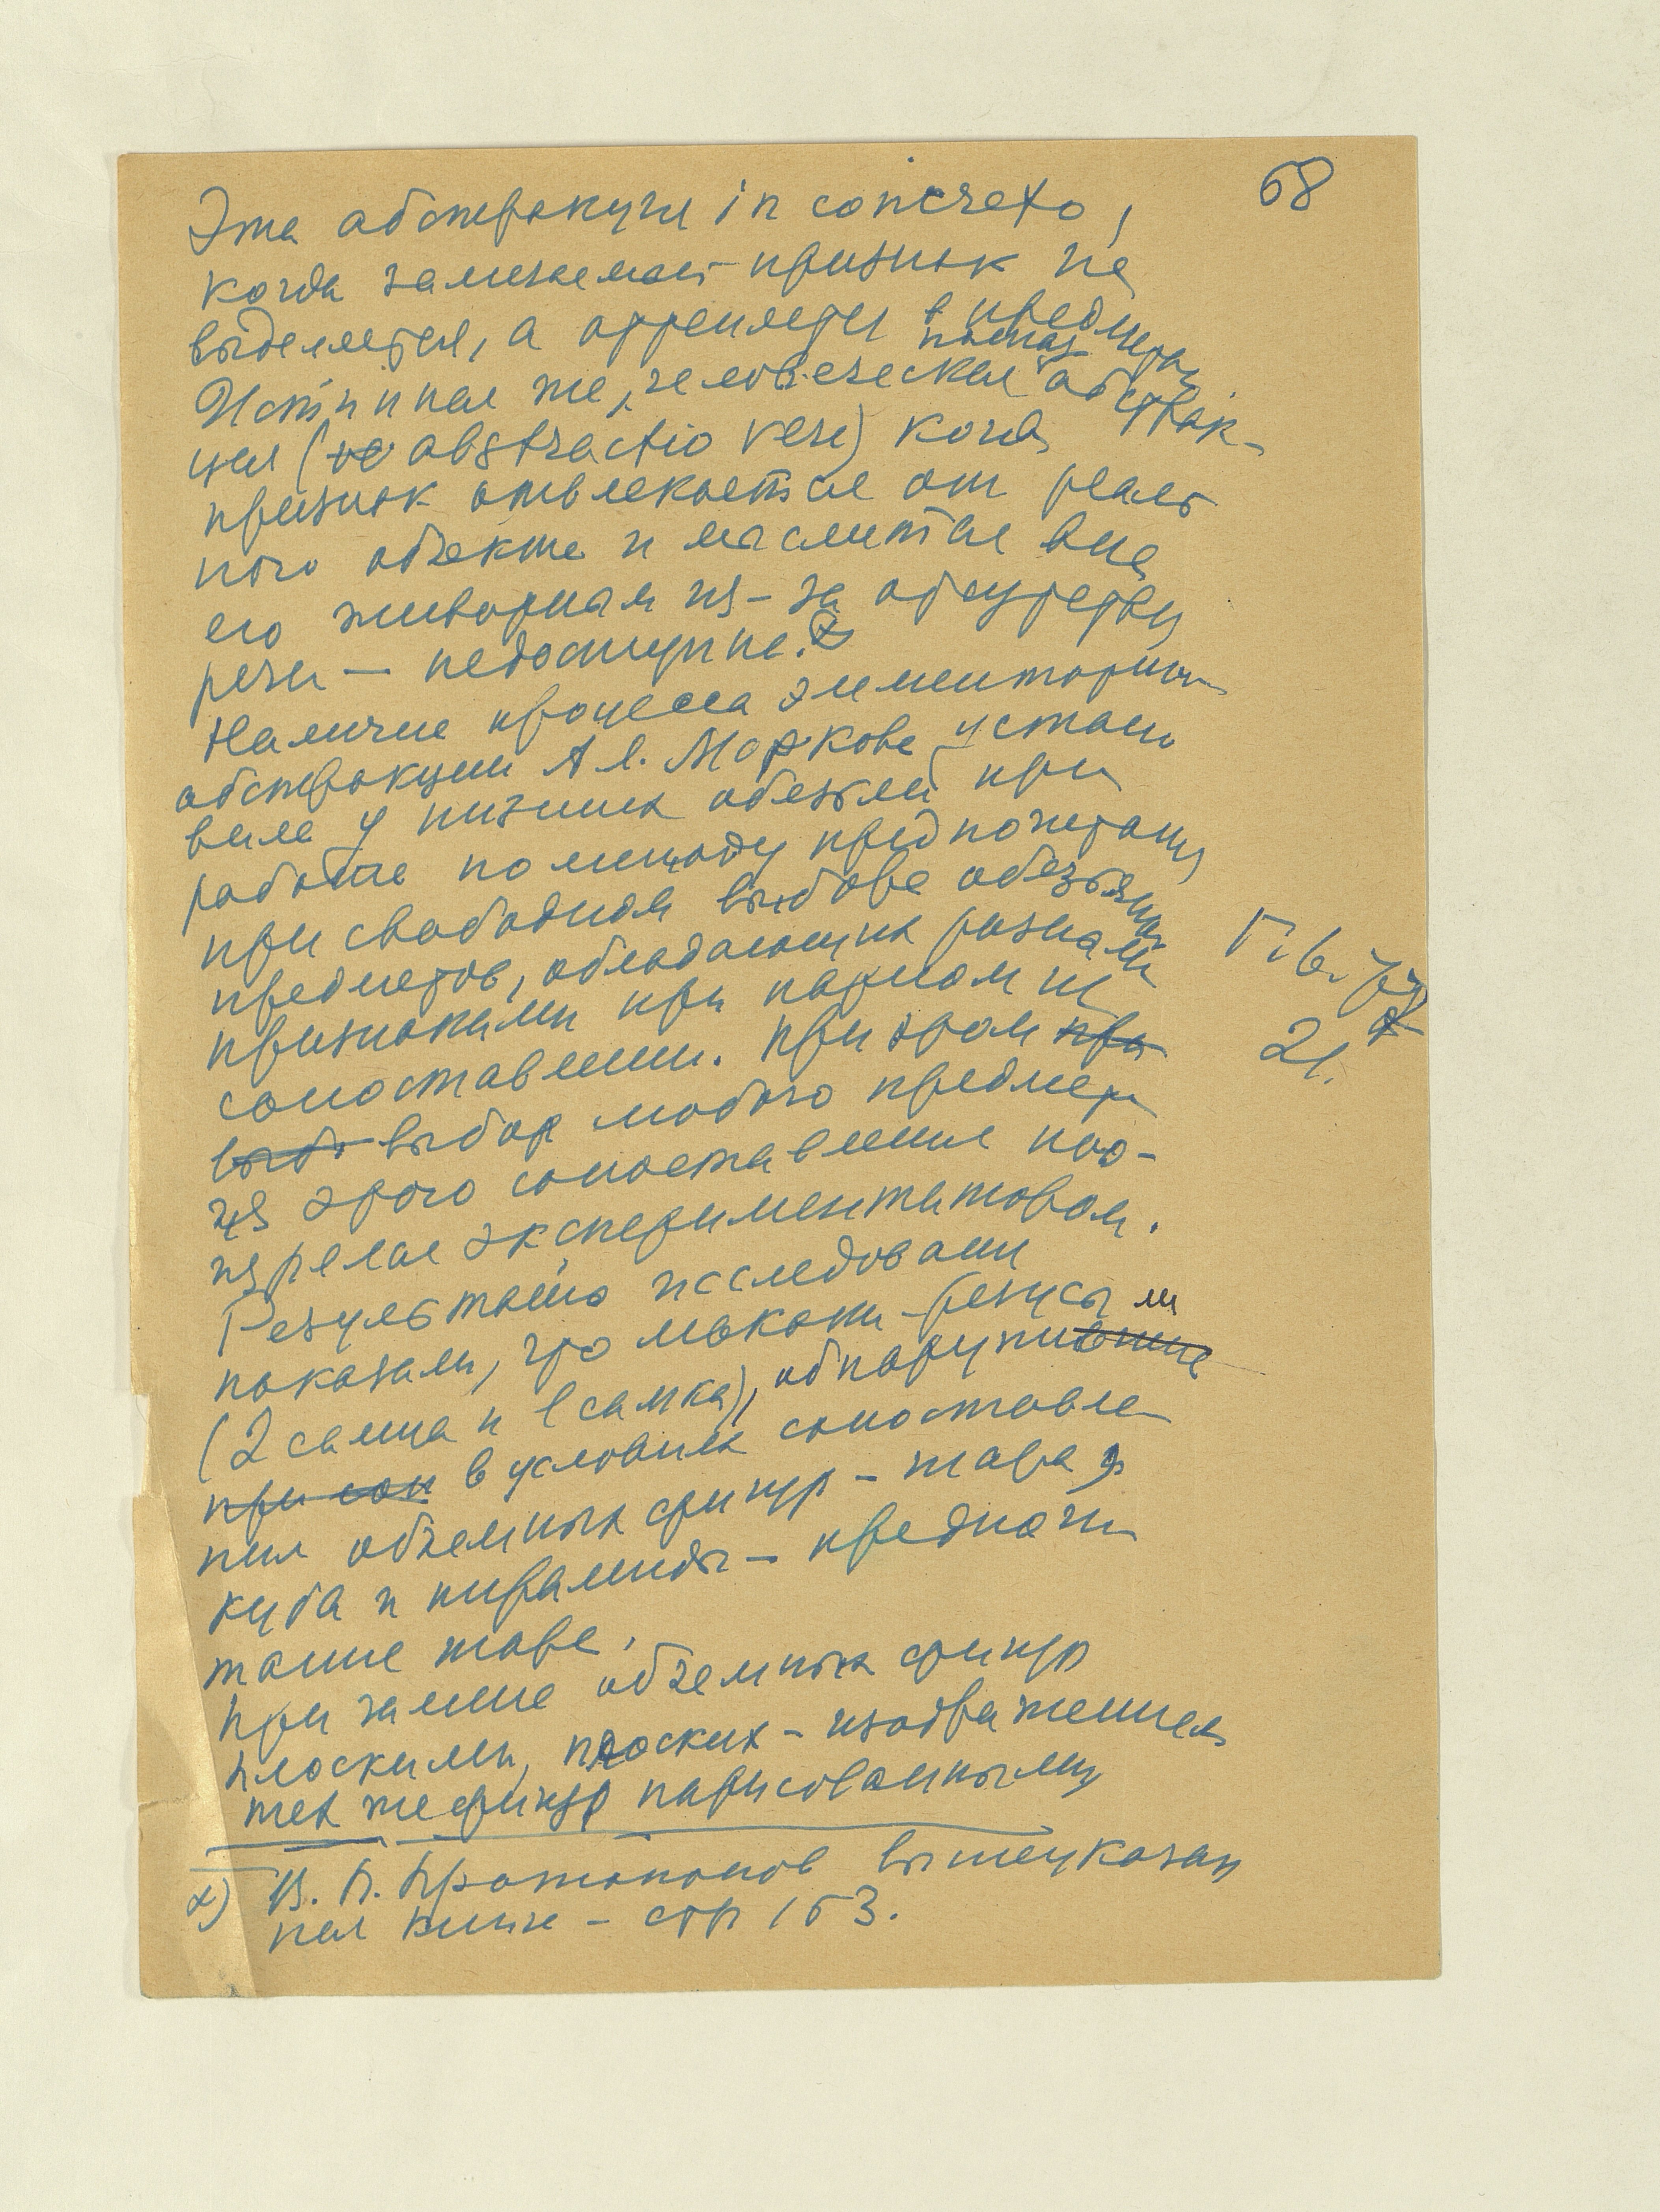 68
Эта абстракция in concreto,
когда замечаемый признак не
выделяется, а оттеняется в предмете.
Истинная же, человеческая полная абстрак-
ция (ve abstractio vera) когда
признак отвлекается от реаль
ного объекта и мыслится вне
его животным из-за отсутствия
речи — недоступна. x)
Наличие процесса элементарной
абстракции А. Я. Маркова устано
вила у низших обезьян при
работе по методу предпочтения
при свободном выборе обезьяной
предметов, обладающих разными
признаками при парном их
сопоставлении. При этом при
выб. выбор любого предмета
из этого сопоставления поо-
щрялся экспериментатором.
Результаты исследования
показали, что макаки-резусы
(2 самца и 1 самка), обнаружившие ли
при соп в условиях сопоставле
ния объемных фигур - шара,
куба и пирамиды - предпочи
тание шара.
При замене объемных фигур
плоскими, плоских - изображением
тех же фигур нарисованными
x) В. П. Протопопов вышеуказан
ная книга - стр 153.
21.